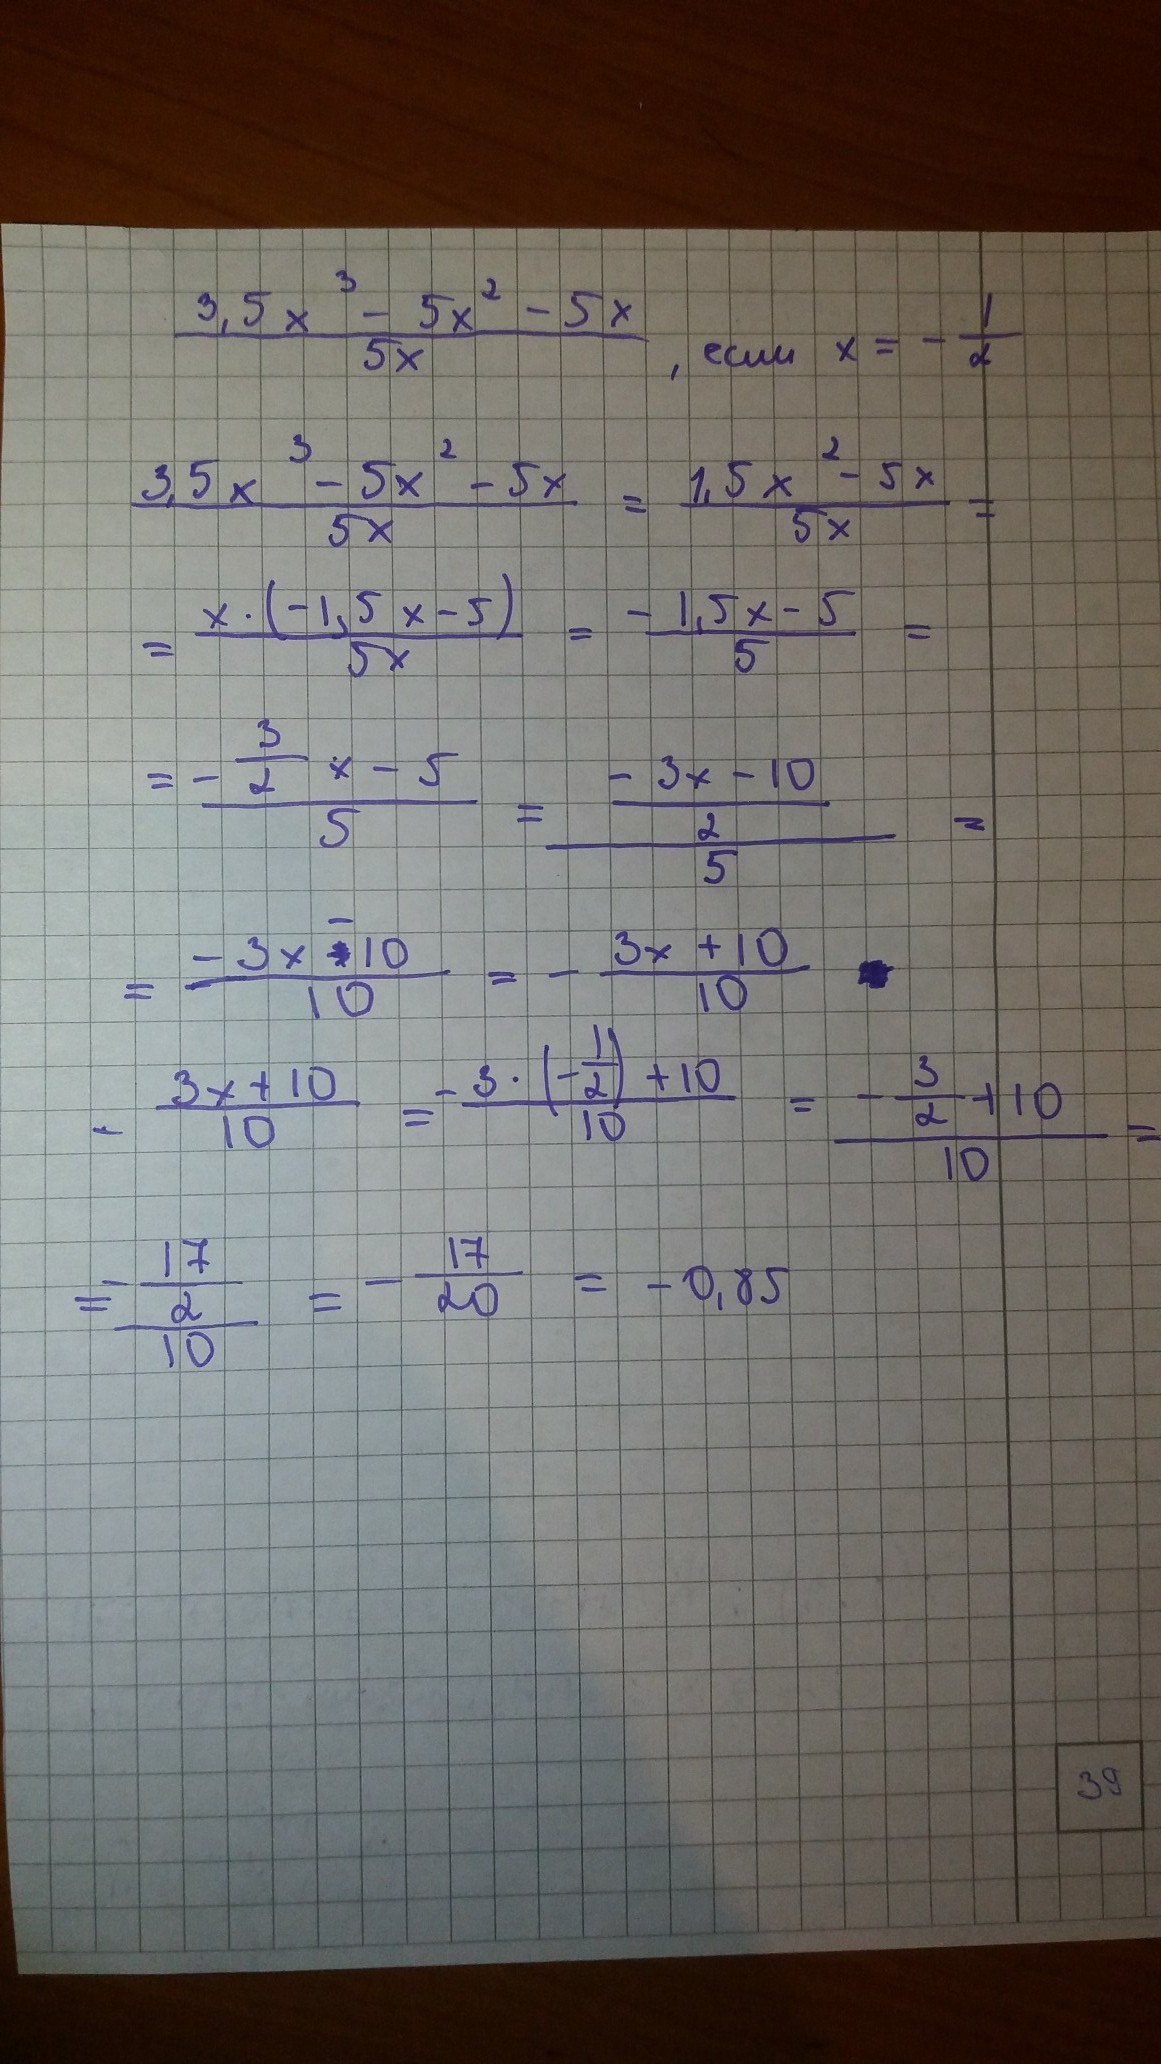 (3,5x³ - 5x² - 5x)/(5x), если x = -1/2
(3,5x³ - 5x² - 5x)/(5x) = (1,5x² - 5x)/(5x) =
= (x·(-1,5x - 5))/(5x) = (-1,5x - 5)/5 =
= (-3/2 x - 5)/5 = ((-3x - 10)/2)/5 =
= (-3x - 10)/10 = -(3x + 10)/10
-(3x + 10)/10 = -(3·(-1/2) + 10)/10 = (-3/2 + 10)/10 =
= -(17/2)/10 = -17/20 = -0,85
39